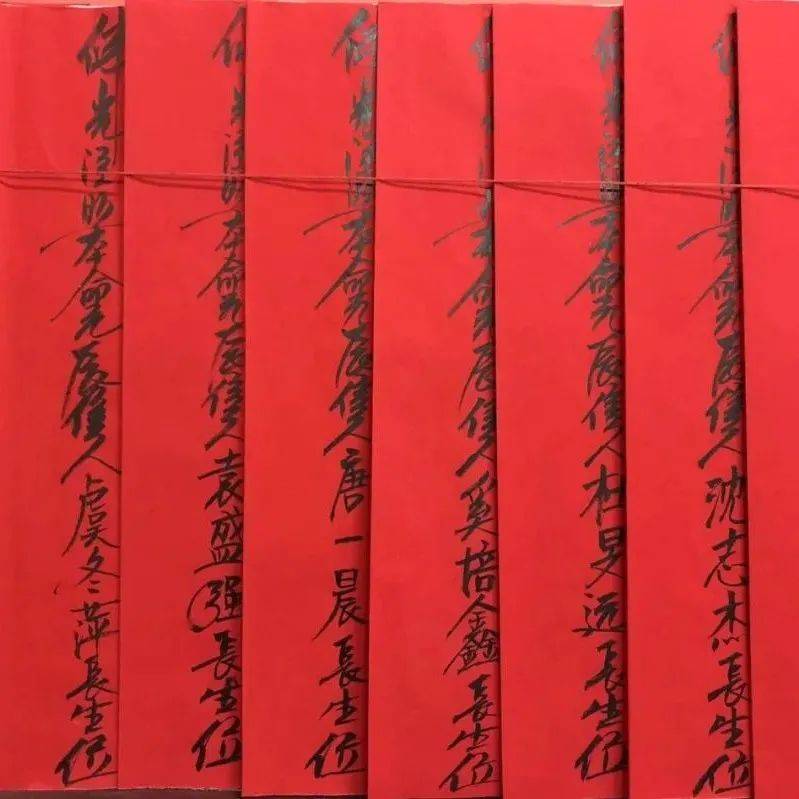 佛光注照本命元辰信人沈志杰長生位
佛光注照本命元辰信人杜远長生位
佛光注照本命元辰信人奚培鑫長生位
佛光注照本命元辰信人唐一晨長生位
佛光注照本命元辰信人袁盛强長生位
佛光注照本命元辰信人虞冬萍長生位